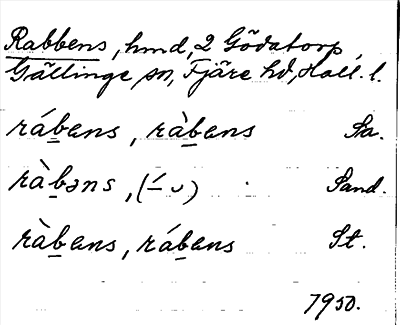 Rabbens, hmd, 2 Gödatorp,
Gällinge sn, Fjäre hd, Hall. l.
rábens, ràbens Sa.
ràbəns, (–́ ᴗ) Sand.
ràbens, rábens St.
1950.